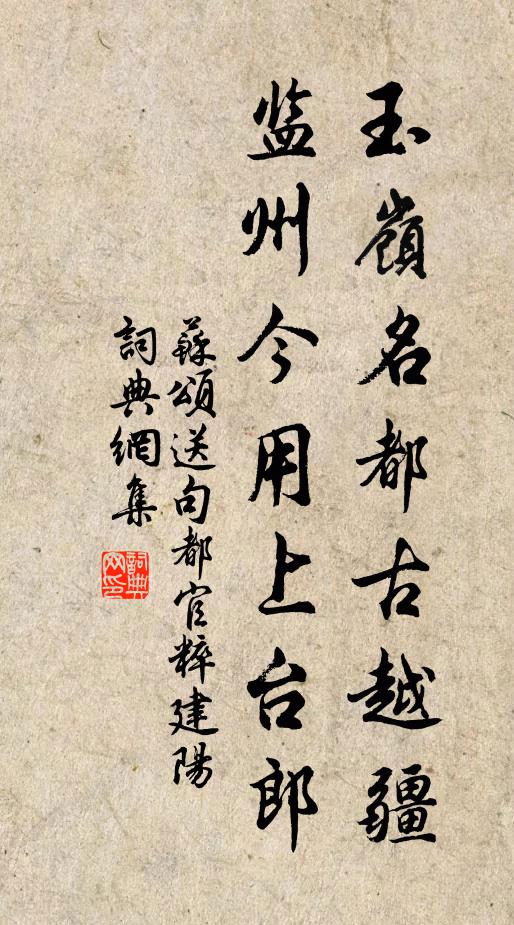 玉嶺名都古越疆
监州今用上台郎
蘇頌送句都官粹建陽
詞典網集
詞典网印